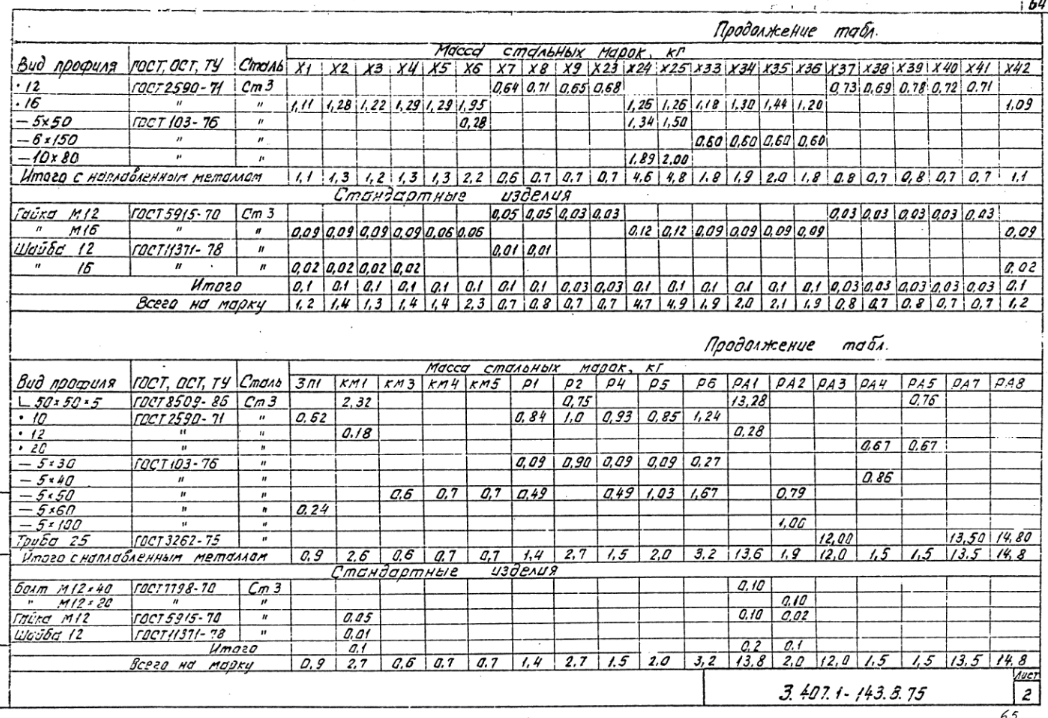 64
Продолжение табл.
Масса стальных марок, кг
Вид профиля ГОСТ, ОСТ, ТУ Сталь X1 X2 X3 X4 X5 X6 X7 X8 X9 X23 X24 X25 X33 X34 X35 X36 X37 X38 X39 X40 X41 X42
• 12 ГОСТ 2590-71 Ст 3 0,64 0,71 0,65 0,68 0,73 0,69 0,78 0,72 0,71
• 16 " " 1,11 1,28 1,22 1,29 1,29 1,95 1,26 1,26 1,18 1,30 1,44 1,20 1,09
— 5×50 ГОСТ 103-76 " 0,28 1,34 1,50
— 6×150 " " 0,60 0,60 0,60 0,60
— 10×80 " " 1,89 2,00
Итого с наплавленным металлом 1,1 1,3 1,2 1,3 1,3 2.2 0,6 0.7 0.7 0,7 4.6 4,8 1.8 1,9 2.0 1,8 0.8 0,7 0,8 0,7 0,7 1,1
Стандартные изделия
Гайка М12 ГОСТ 5915-70 Ст 3 0,05 0,05 0,03 0,03 0,03 0,03 0,03 0,03 0,03
" М16 " " 0,09 0,09 0,09 0,09 0,06 0,06 0,12 0,12 0,09 0,09 0,09 0,09 0,09
Шайба 12 ГОСТ 11371-78 " 0,01 0,01
" 16 " " 0,02 0,02 0,02 0,02 0,02
Итого 0,1 0.1 0.1 0,1 0,1 0,1 0,1 0,1 0,03 0,03 0,1 0,1 0,1 0,1 0,1 0,1 0,03 0,03 0,03 0,03 0,03 0,1
Всего на марку 1,2 1,4 1,3 1,4 1,4 2,3 0,7 0,8 0,7 0,7 4,7 4,9 1,9 2.0 2,1 1,9 0,8 0,7 0,8 0,7 0,7 1,2
Продолжение табл.
Масса стальных марок, кг
Вид профиля ГОСТ, ОСТ, ТУ Сталь ЗП1 КМ1 КМ3 КМ4 КМ5 Р1 Р2 Р4 Р5 Р6 РА1 РА2 РА3 РА4 РА5 РА7 РА8
∟ 50×50×5 ГОСТ 8509-86 Ст 3 2,32 0,75 13,28 0,76
• 10 ГОСТ 2590-71 " 0.62 0,84 1,0 0,93 0,85 1,24
• 12 " " 0.18 0.28
• 20 " " 0,67 0,67
— 5×30 ГОСТ 103-76 " 0,09 0,90 0,09 0,09 0,27
— 5×40 " " 0.86
— 5×50 " " 0,6 0,7 0,7 0,49 0,49 1,03 1,67 0,79
— 5×60 " " 0,24
— 5×100 " " 1,00
Труба 25 ГОСТ 3262-75 " 12,00 13,50 14,80
Итого с наплавленным металлом 0,9 2,6 0,6 0,7 0,7 1,4 2.7 1,5 2.0 3,2 13,6 1,9 12,0 1,5 1,5 13,5 14,8
Стандартные изделия
Болт М12×40 ГОСТ 7798-70 Ст 3 0,10
" М12×20 " " 0,10
Гайка М12 ГОСТ 5915-70 " 0,05 0,10 0,02
Шайба 12 ГОСТ 11371-78 " 0,01
Итого 0,1 0,2 0,1
Всего на марку 0,9 2,7 0,6 0,7 0,7 1,4 2,7 1.5 2.0 3,2 13,8 2,0 12,0 1,5 1,5 13,5 14,8
3.407.1-143.8.75
Лист
2
65